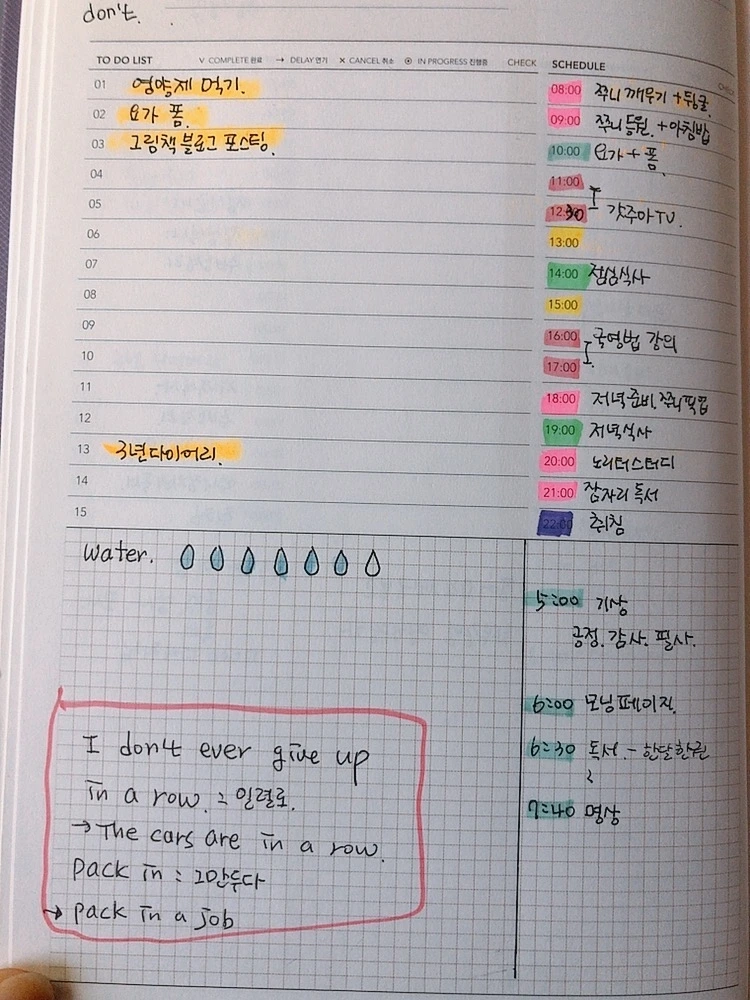 don't.
TO DO LIST V COMPLETE 완료 → DELAY 연기 X CANCEL 취소 ⊙ IN PROGRESS 진행중 CHECK
01 영양제 먹기.
02 요가 폼.
03 그림책 블로그 포스팅.
04
05
06
07
08
09
10
11
12
13 3년 다이어리.
14
15
SCHEDULE
08:00 쭈니 깨우기 +뒹굴.
09:00 쭈니 등원. +아침밥
10:00 요가 + 폼.
11:00
12:30 갓주아TV.
13:00
14:00 점심식사
15:00
16:00 국영법 강의
17:00
18:00 저녁준비. 쭈니픽업
19:00 저녁식사
20:00 노리터스터디
21:00 잠자리 독서
22:00 취침
water.
5:00 기상
긍정. 감사. 필사.
6:00 모닝페이지.
6:30 독서 - 한달한권
7:40 명상
I don't ever give up
in a row. : 일렬로.
→ The cars are in a row.
pack in : 그만두다
→ pack in a job